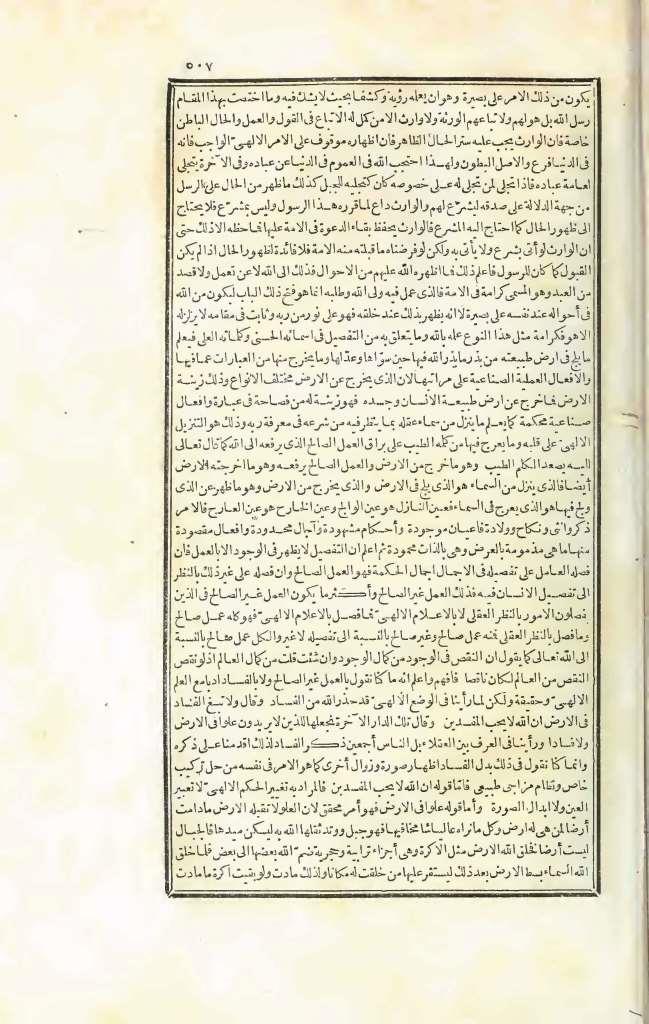 ٥٠٧
يكون من ذلك الامر على بصيرة وهو ان يعمله رؤية وكشفا بحيث لا يشك فيه وما اختصت بهذا المقام
رسل الله بل هو لهم ولا تباعهم الورثة ولا وارث الا من كمل له الاتباع في القول والعمل والحال الباطن
خاصة فان الوارث يجب عليه ستر الحال الظاهر فان اظهاره موقوف على الامر الالهى الواجب فانه
فى الدنيا فرع والاصل البطون ولهذا احتجب الله فى العموم فى الدنيا عن عباده وفى الآخرة يتجلى
لعامة عباده فاذا تجلى لمن تجلى له على خصوصه كان كتجليه للجبل كذلك ما ظهر من الحال على الرسل
من جهة الدلالة على صدقه ليشرع لهم والوارث داع لما قرره هذا الرسول وليس بمشرع فلا يحتاج
الى ظهور الحال كما احتاج اليه المشرع فالوارث يحفظ بقاء الدعوة فى الامة عليها فما حظه الا ذلك حتى
ان الوارث لو أتى بشرع ولا يأتى به ولكن لو فرضناه ما قبلته منه الامة فلا فائدة لظهور الحال اذا لم يكن
القبول كما كان للرسول فاعلم ذلك فما اظهره الله عليهم من الاحوال فذلك الى الله لا عن تعمل ولا قصد
من العبد وهو المسمى كرامة فى الامة فالذى عمل فيه ولى الله وطلبه انما هو فتح ذلك الباب ليكون من الله
فى أحواله عند نفسه على بصيرة لا انه يظهر بذلك عند خلقه فهو على نور من ربه وثابت فى مقامه لا يزلزله
الا هو فكرامة مثل هذا النوع علمه بالله وما يتعلق به من التفصيل فى اسمائه الحسنى وكلماته العلى فيعلم
ما يلج فى ارض طبيعته من بذر ما بذر الله فيها حين سواها وعدلها وما يخرج منها من العبارات عما فيها
والافعال العملية الصناعية على مراتبها لان الذى يخرج عن الارض مختلف الانواع وذلك زينة
الارض فما خرج عن ارض طبيعة الانسان وجسده فهو زينة له من فصاحة فى عبارة وافعال
صناعية محكمة كما يعلم ما ينزل من سماء عقله بما ينظر فيه من شرعه فى معرفة ربه وذلك هو التنزيل
الالهى على قلبه وما يعرج فيها من كلمه الطيب على براق العمل الصالح الذى يرفعه الى الله كما قال تعالى
اليه يصعد الكلم الطيب وهو ما خرج من الارض والعمل الصالح يرفعه وهو ما اخرجته الارض
أيضا فالذى ينزل من السماء هو الذى يلج فى الارض والذى يخرج من الارض وهو ما ظهر عن الذى
ولج فيها هو الذى يعرج فى السماء فعين النازل هو عين الوالج وعين الخارج هو عين العارج فالامر
ذكر وانثى ونكاح وولادة فاعيان موجودة وأحكام مشهودة وآجال محدودة وافعال مقصودة
منها ما هى مذمومة بالعرض وهى بالذات محمودة ثم اعلم ان التفصيل لا يظهر فى الوجود الا بالعمل فان
فصله العامل على تفصيله فى الاجمال اجمال الحكمة فهو العمل الصالح وان فصله على غير ذلك بالنظر
الى تفصيل الانسان فيه فذلك العمل غير الصالح وأكثر ما يكون العمل غير الصالح فى الذين
يفصلون الامور بالنظر العقلى لا بالاعلام الالهى فما فصل بالاعلام الالهى فهو كله عمل صالح
وما فصل بالنظر العقلى فمنه عمل صالح وغير صالح بالنسبة الى تفصيله لا غير والكل عمل صالح بالنسبة
الى الله تعالى كما يقول ان النقص فى الوجود من كمال الوجود وان شئت قلت من كمال العالم اذ لو نقص
النقص من العالم لكان ناقصا فافهم واعلم انه ما كنا نقول بالعمل غير الصالح ولا بالفساد ادبا مع العلم
الالهى وحقيقة ولكن لما رأينا فى الوضع الالهى قد حذر الله من الفساد وقال ولا تبغ الفساد
فى الارض ان الله لا يحب المفسدين وقال تلك الدار الآخرة نجعلها للذين لا يريدون علوا فى الارض
ولا فسادا ورأينا فى العرف بين العقلاء بل الناس أجمعين ذكر الفساد لذلك اقدمنا على ذكره
وانما كنا نقول فى ذلك بدل الفساد اظهار صورة وزوال أخرى كما هو الامر فى نفسه من حل تركيب
خاص ونظام مزاجى طبيعى فاما قوله ان الله لا يحب المفسدين فالمراد به تغيير الحكم الالهى لا تغيير
العين ولا ابدال الصورة وأما قوله علوا فى الارض فهو أمر محقق لان العلو لا تقبله الارض مادامت
أرضا لمن هى له ارض وكل ما نراه عاليا شامخا فيها فهو جبل ووتد ثقلها الله به ليسكن ميدها فالجبال
ليست أرضا فخلق الله الارض مثل الاكرة وهى أجزاء ترابية وحجرية ضم الله بعضها الى بعض فلما خلق
الله السماء بسط الارض بعد ذلك ليستقر عليها من خلقت له مكانا ولذلك مادت ولو بقيت اكرة ما مادت